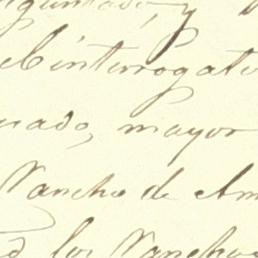 y
el interrogato
rado, mayor
Rancho de Am
los Ranchos